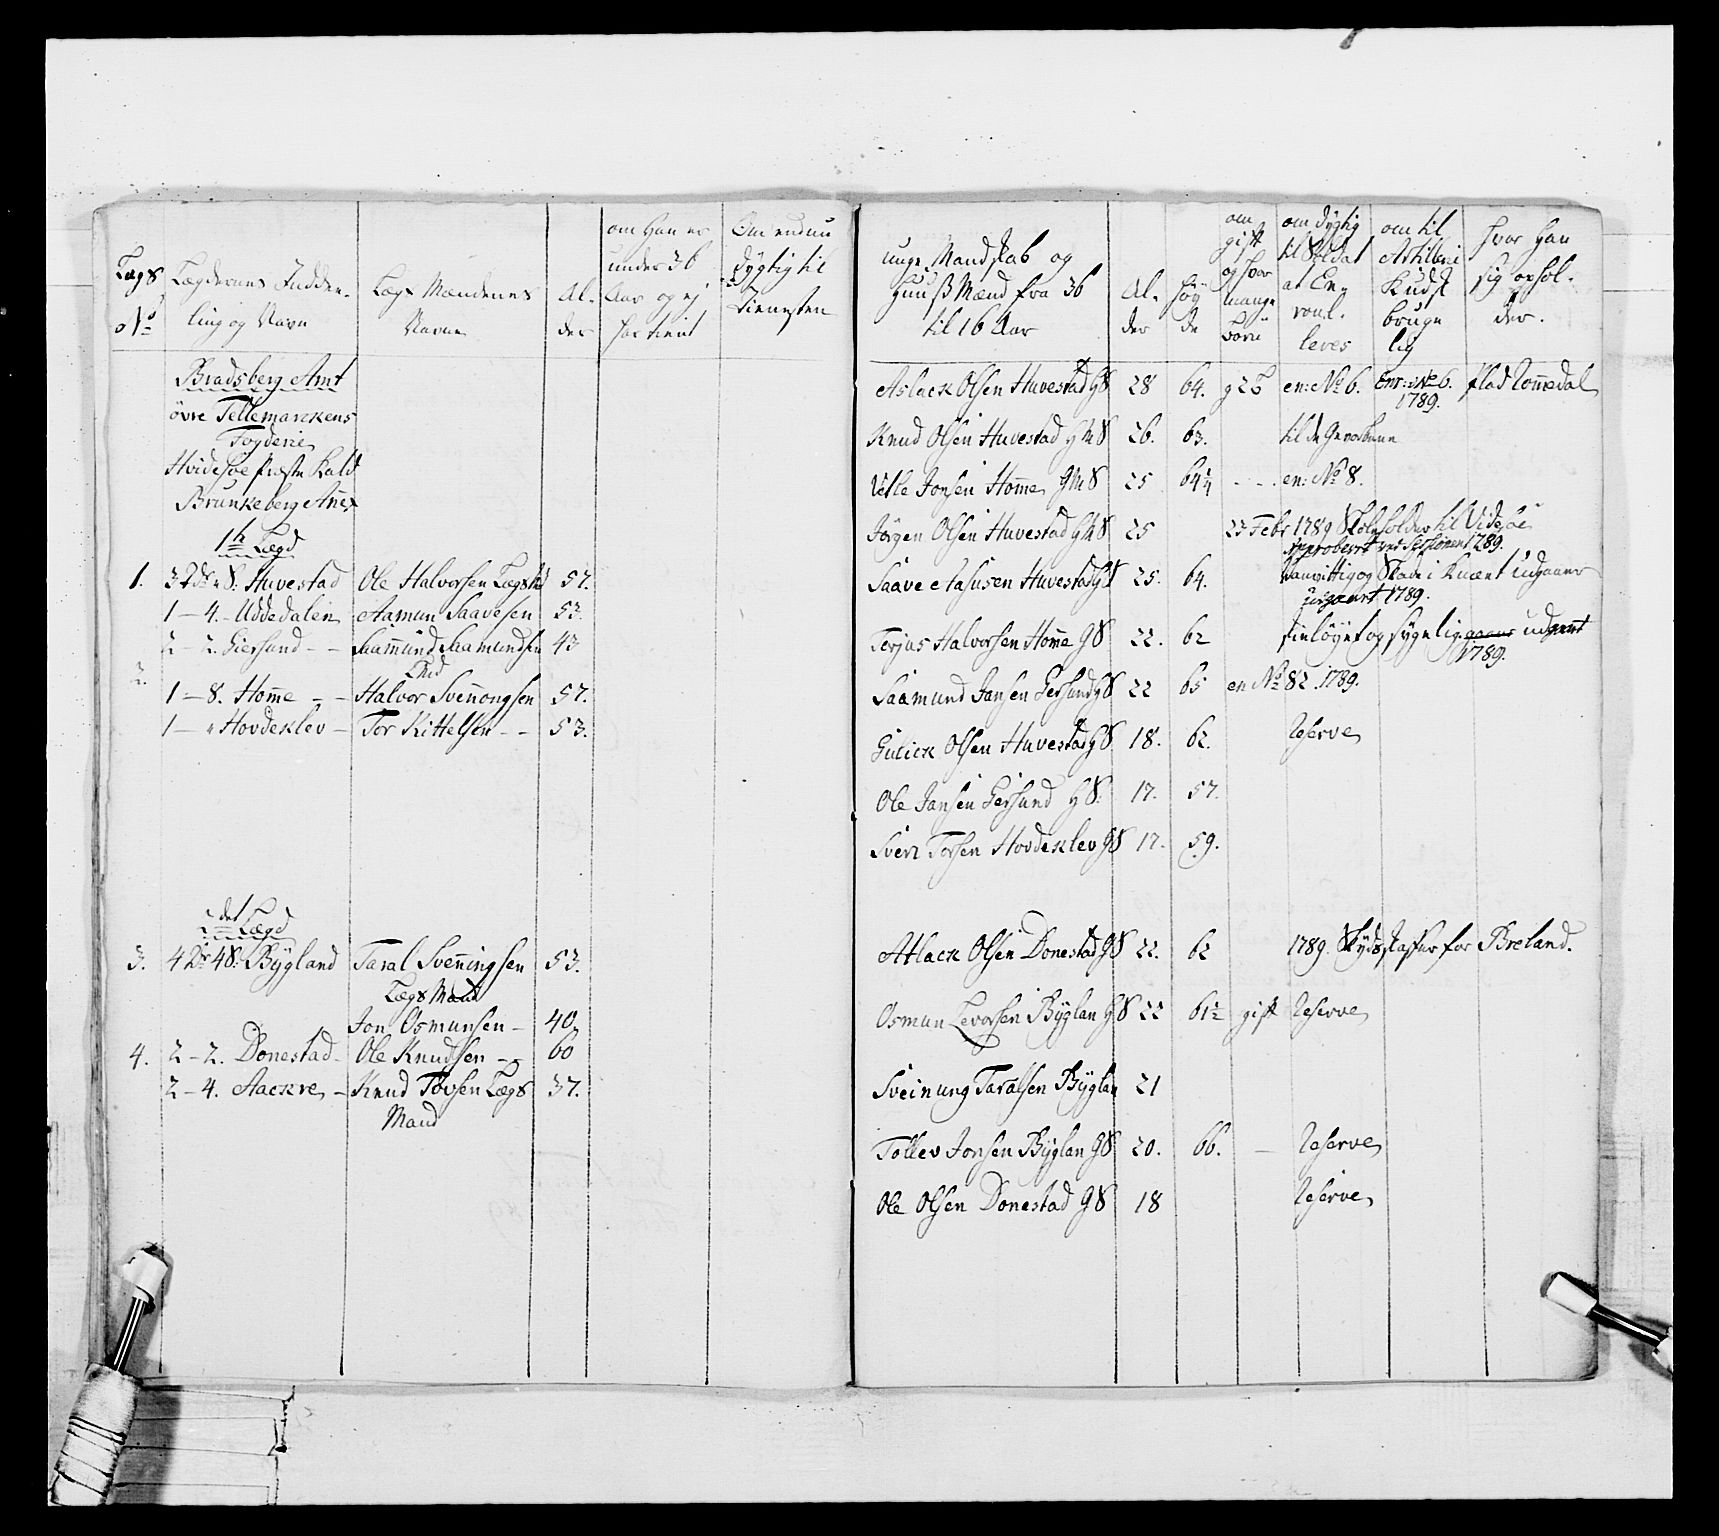 Lægs
No
Lægdernes Inddee-
ling og Navn
Lægs Mændenes
Navne
Al-
der
om Han er
under 36
Aar og ej
har tient
Om endnu
dygtig til
Tienesten
Bradsberg Amt
övre Tellemarckens
Fogderie
Hvidesöe Præste Kald
Brunkeberg Añex
1te Lægd
1. Huvestad Ole Halvorsen 57.
1 – 4. Uddedalen Aamun Saavesen 53.
2 – 2. Giersund – – Saamund Saamundsen 43
2.
1 – 8. Home – – Halvor Svennongsen 57.
1 – „ Hovdeklev – Tor Kittelsen – – 53.
2det Lægd
3. Bygland Taral Svenningsen 53.
Lægs Mand
Jon Osmunsen – 40
4. 2 – 2. Donestad – Ole Knudsen – – 60
2 – 4. Aackre – Knud Tovsen Lægs 37.
Mand
unge Mandskab og
Huuß Mænd fra 36
til 16 Aar
Al-
der
Höy
de
om
gift
og hvor
mange
Börn
om dygtig
til Soldat
at En-
roul-
leres
om til
Artilleri
Kudsk
bruge
lig
hvor Han
sig ophol-
der.
Aslack Olsen Huvestad GS 28 64. g 2 B en: No 6. Enr: No 6. Flad
1789.
Knud Olsen Huvestad 26. 63. til de
Vetle Jonsen Home 25 64¼ - - - en: No 8.
Jörgen Olsen Huvestad 25 23 Febr 1789 til Videsöe
Approberet ved Sessionen 1789.
Saave Huvestad 25. 64. Vanvittig og Skade i Knæet udgaaer
udgaaet 1789.
Terjus Halvorsen Home GS 22. 62 og sygelig udgaaet
1789.
Saamund Jansen Gersund GS 22 65 en No 82. 1789.
Gulick Olsen Huvestad GS 18. 62. Reserve
Ole Jansen Gersund GS. 17. 57.
Sven Torsen Hovdeklev GS 17. 59.
Atlack Olsen Donestad GS 22. 62 1789. Skydsskaffer for Breland.
Osmun Levorsen Byglan GS 22 61½ gift Reserve
Sveinung Taralsen Byglan 21
Tollev Jonsen Byglan GS 20. 66. – Reserve
Ole Olsen Donestad GS 18 Reserve